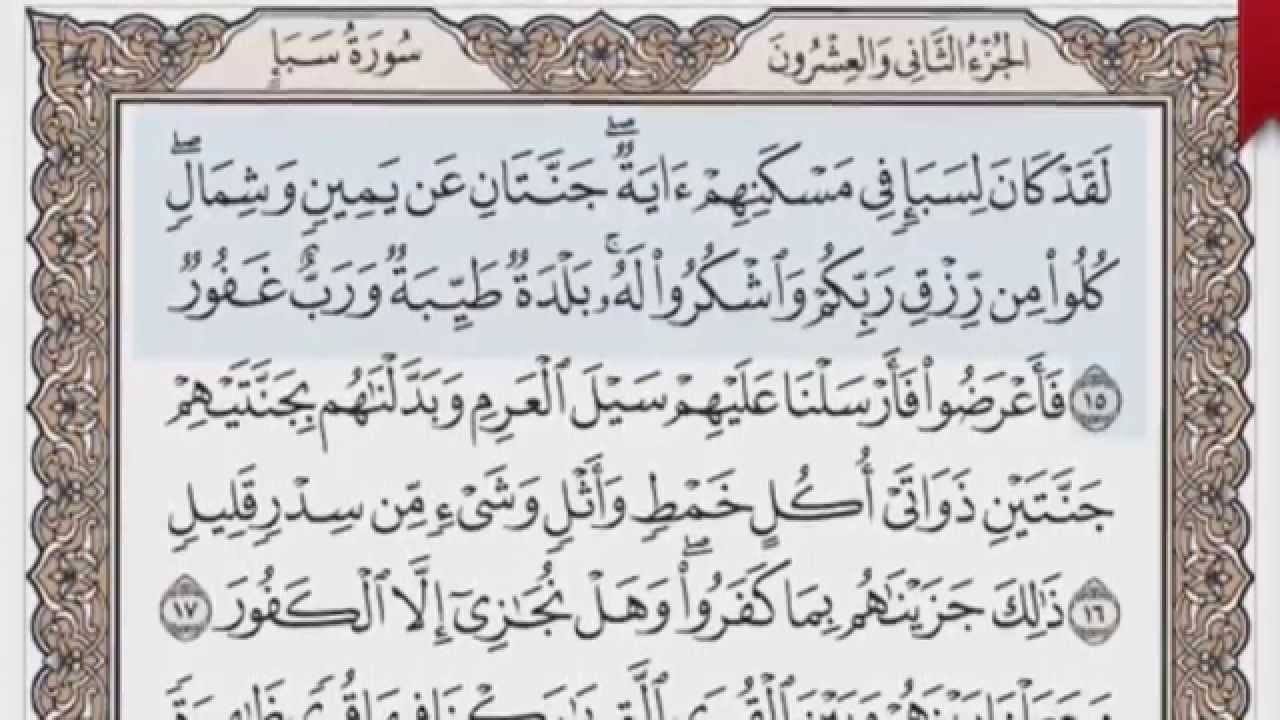 الجُزْءُ الثَّانِي وَالعِشْرُونَ
سُورَةُ سَبَإٍ
لَقَدْ كَانَ لِسَبَإٖ فِي مَسْكَنِهِمْ ءَايَةٞۖ جَنَّتَانِ عَن يَمِينٖ وَشِمَالٖۖ
كُلُواْ مِن رِّزْقِ رَبِّكُمْ وَٱشْكُرُواْ لَهُۥۚ بَلْدَةٞ طَيِّبَةٞ وَرَبٌّ غَفُورٞ
١٥ فَأَعْرَضُواْ فَأَرْسَلْنَا عَلَيْهِمْ سَيْلَ ٱلْعَرِمِ وَبَدَّلْنَٰهُم بِجَنَّتَيْهِمْ
جَنَّتَيْنِ ذَوَاتَيْ أُكُلٍ خَمْطٖ وَأَثْلٖ وَشَيْءٖ مِّن سِدْرٖ قَلِيلٖ
١٦ ذَٰلِكَ جَزَيْنَٰهُم بِمَا كَفَرُواْۖ وَهَلْ نُجَٰزِيٓ إِلَّا ٱلْكَفُورَ ١٧
وَجَعَلْنَا بَيْنَهُمْ وَبَيْنَ ٱلْقُرَى ٱلَّتِي بَٰرَكْنَا فِيهَا قُرٗى ظَٰهِرَةٗ